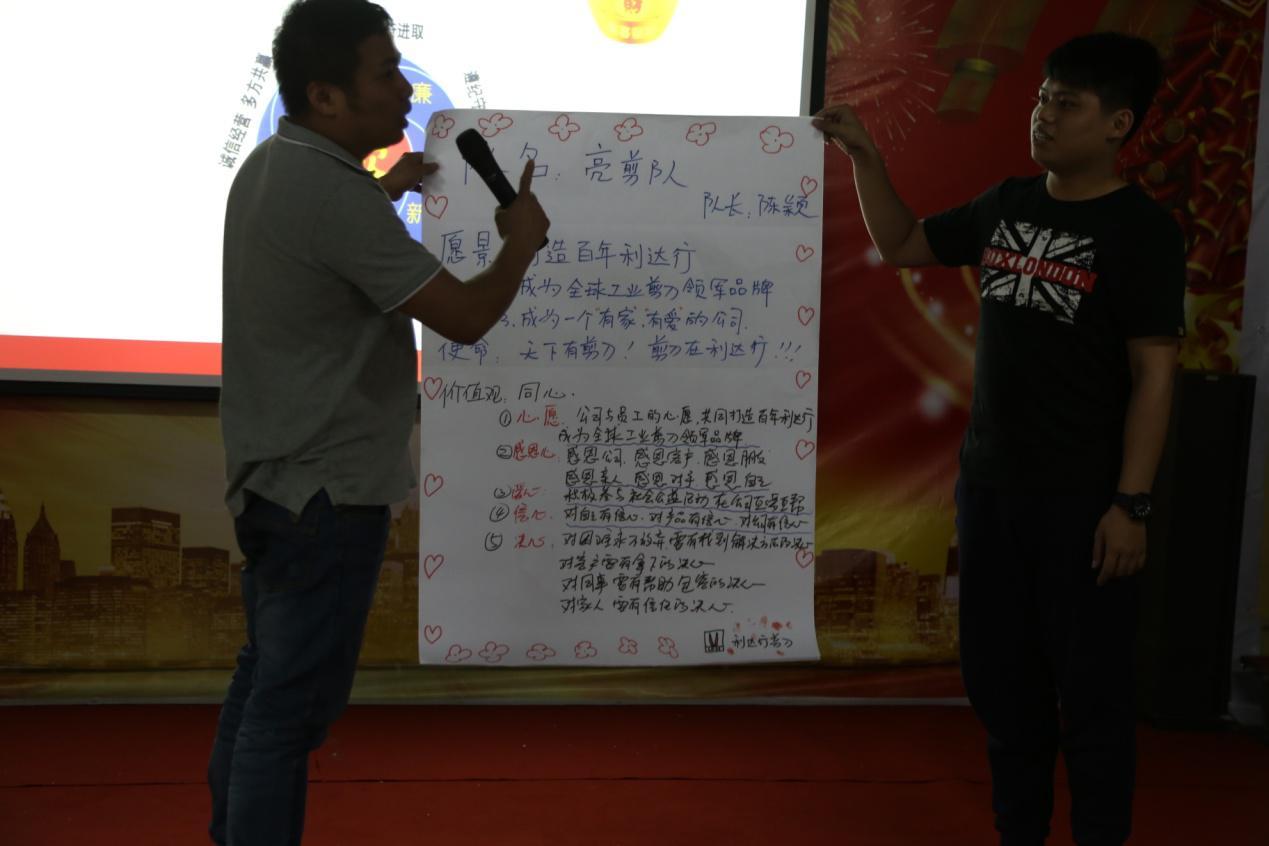 进取
诚信经营 多方共赢
廉
新
财
名：亮剪队
队长：陈颖
愿景 造百年利达行
成为全球工业剪刀领军品牌
3.成为一个"有家,有爱"的公司.
使命：天下有剪刀！剪刀在利达行!!!
价值观：同心.
①心愿：公司与员工的心愿,共同打造百年利达行
成为全球工业剪刀领军品牌
②感恩心：感恩公司.感恩客户.感恩朋友
感恩亲人.感恩对手.感恩自己
③ 积极参与社会公益活动 在公司互尊互帮
④信心：对自己有信心.对产品有信心.对公司有信心
⑤决心：对困难永不放弃,需有找到解决方法的决心
对客户需有拿下的决心
对同事需有帮助包容的决心
对家人需有信任的决心.
利达行剪刀
LONDON